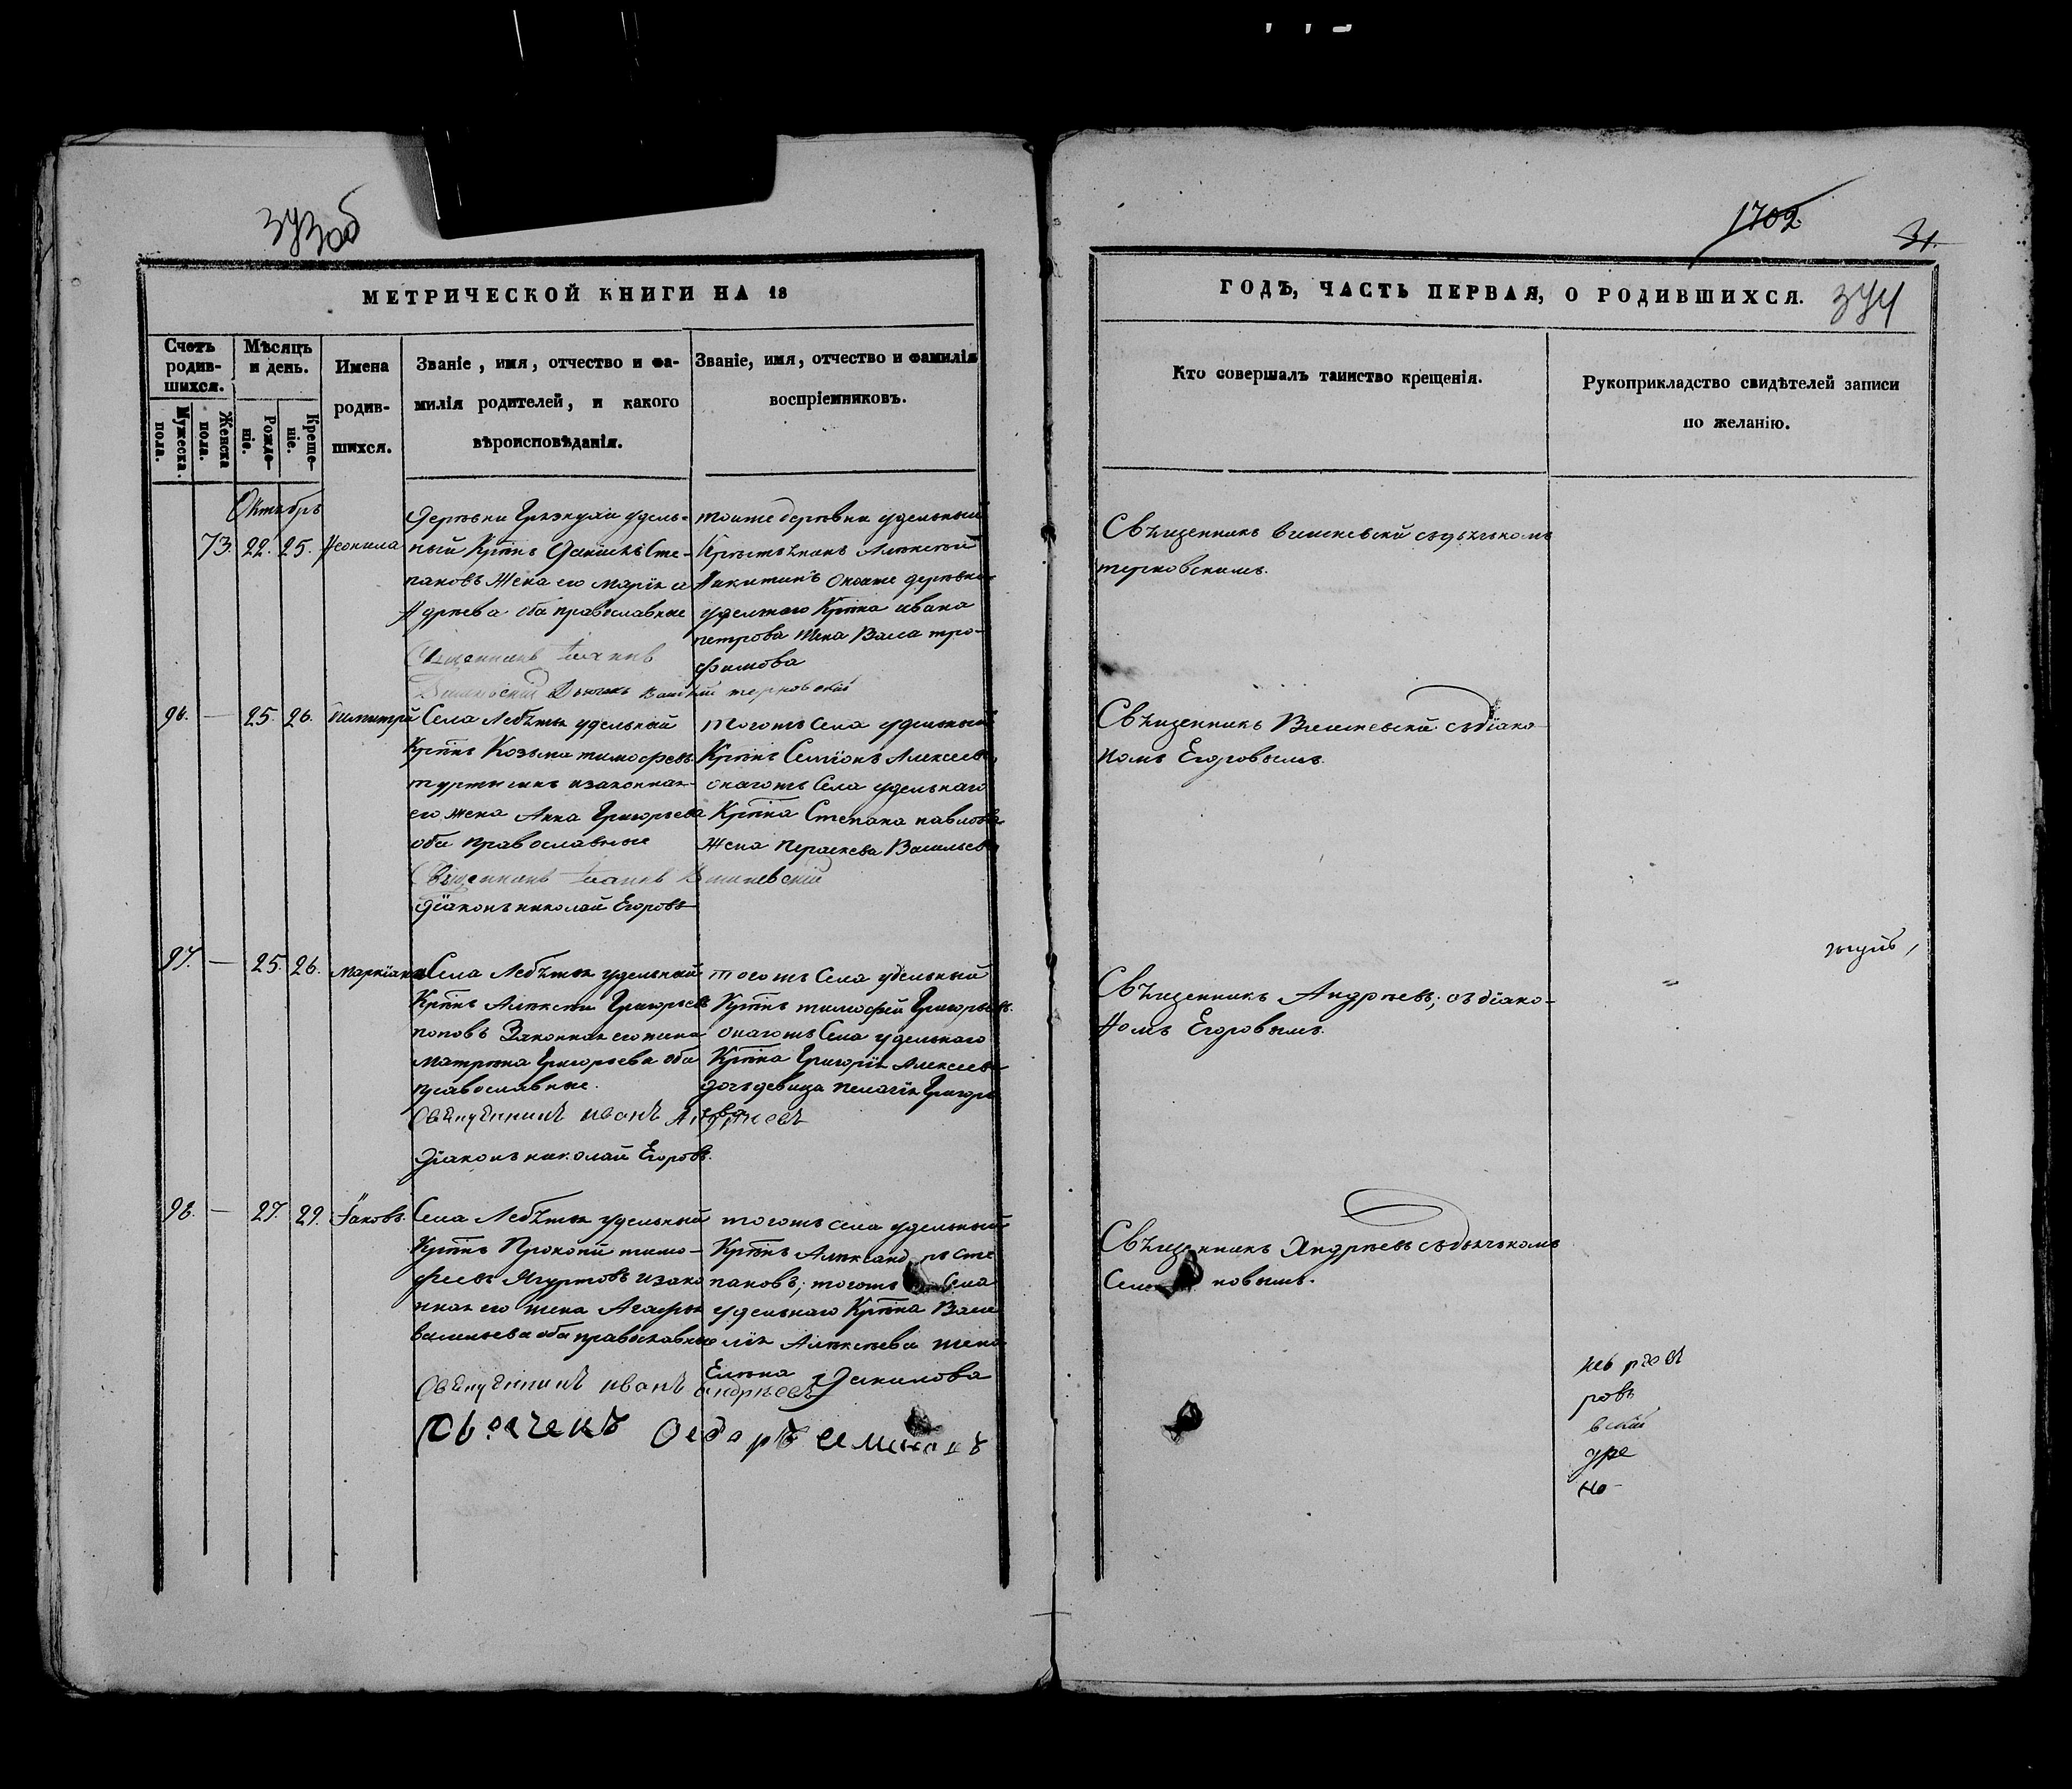 373об
МЕТРИЧЕСКОЙ КНИГИ НА 18
Счетъ родив-шихся.
Мѣсяцъ и день.
Имена родив-шихся.
Званіе, имя, отчество и фа-
милія родителей, и какого
вѣроисповѣданія.
Званіе, имя, отчество и фамилія
воспріемниковъ.
Мужеска пола.
Женска пола.
Рожде-ніе.
Креще-ніе.
Октябрь
73. 22. 25. Неонила
удель-
ный Крѣнъ Данилъ Сте-
пановъ жена его Марія а
ндреева оба православные
Священникъ Іоаннъ
Вишневскій Дьячекъ терновскій
тоиже деревни удельный
Крестьянинъ Алексей
Никитинъ Онаиже деревни
уделного Крѣна ивана
петрова жена Васа тро-
фимова
96. — 25. 26. Димитрій
Села Лебяжья удельный
Крѣнъ Козьма тимофеевъ
изаконная
его жена Анна Григорьева
оба православные
Священникъ Іоаннъ Вишневскій
Діаконъ николай Егоровъ
тогожъ Села удельный
Крѣнъ Семіонъ Алексеевъ
онагожъ Села удельнаго
Крѣна Степана павлова
жена Пераскева Васильева
97. — 25. 26. Маркіанъ
Села Лебяжья удельный
Крѣнъ Алексей Григорьевъ
поповъ Законная его жена
Матрена Григорьева оба
православные.
Священникъ иванъ Андреевъ
Діаконъ николай Егоровъ.
тогожъ Села удельный
Крѣнъ тимофей Григорьевъ.
онагожъ Села удельнаго
Крѣна Григорія Алексеева
дочь девица пелагія Григорь
98. — 27. 29. Іаковъ
Села Лебяжья удельный
Крѣнъ Прокопій тимо-
феевъ Ягуртовъ изако
нная его жена Агафья
васильева оба православные
Священникъ иванъ андреевъ
Дьячекъ Федоръ Семеновъ
тогожъ села удельный
Крѣнъ Александръ Сте
пановъ; тогожъ Села
удельнаго Крѣна Васи
лія Алексеева жена
Елена Данилова
1702
31.
ГОДЪ, ЧАСТЬ ПЕРВАЯ, О РОДИВШИХСЯ.
374
Кто совершалъ таинство крещенія.
Рукоприкладство свидѣтелей записи
по желанію.
Священникъ вишневскій съдьячькомъ
терновскимъ.
Священникъ Вишневскій съдіако
номъ Егоровымъ.
Священникъ Андреевъ; съдіако-
номъ Егоровымъ.
Священникъ Андреевъ съдьячькомъ
Семеновымъ.
ровъ
вскій
дре
но-